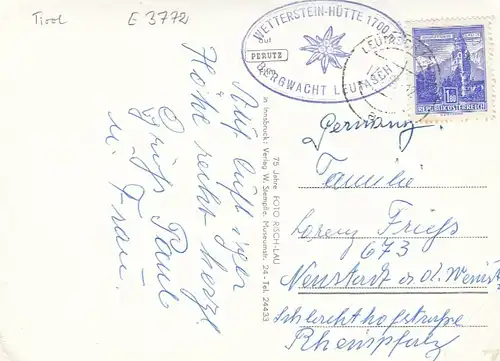 Tirol
E 3772
WETTERSTEIN-HÜTTE 1700
auf
PERUTZ
BERGWACHT LEUTASCH
LEUTASCH
1.50
REPUBLIK ÖSTERREICH
Auf luftiger
Höhe recht herzl
Grüße Paul
u. Frau.
75 Jahre FOTO RISCH-LAU
in Innsbruck: Verlag W. Stempfle, Museumstr. 24 - Tel. 24433
Germany.
Familie
Lorenz Frieß
673
Neustadt a. d. Weinstr
Schlachthofstraße
Rheinpfalz